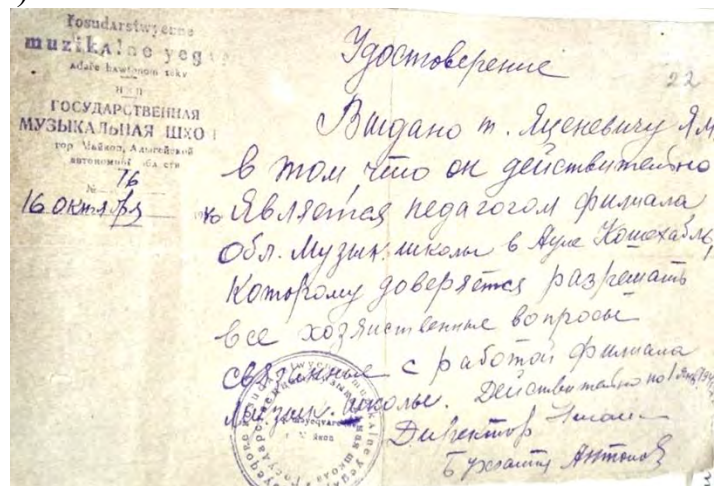 Gosudarstwyenne
muzikalne yeg
Adəge
НКП
ГОСУДАРСТВЕННАЯ
МУЗЫКАЛЬНАЯ ШКО
гор Майкоп, Адыгейской
автономной области
№ 76
16 октября 1940
Удостоверение
22
Выдано т. Яценевичу Я.М.
в том, что он действительно
является педагогом филиала
Обл. Музык. школы в Ауле Кошехабль,
Которому доверяется разрешать
все хозяиственные вопросы
связанные с работой филиала
Музык. школы. Действительно по 1
Директор
Бухгалтер Антонов